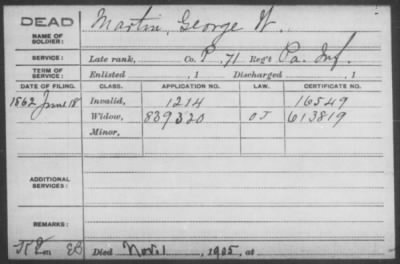 DEAD
NAME OF SOLDIER: Martin, George W.
SERVICE: Late rank, Co. P. 71 Reg't Pa. Inf.
TERM OF SERVICE: Enlisted , 1 Discharged , 1
DATE OF FILING. CLASS. APPLICATION NO. LAW. CERTIFICATE NO.
1862 June 18 Invalid, 1214 16549
Widow, 839320 O J 613819
Minor,
ADDITIONAL SERVICES:
REMARKS:
EB Died Nov. 1, 1905, at